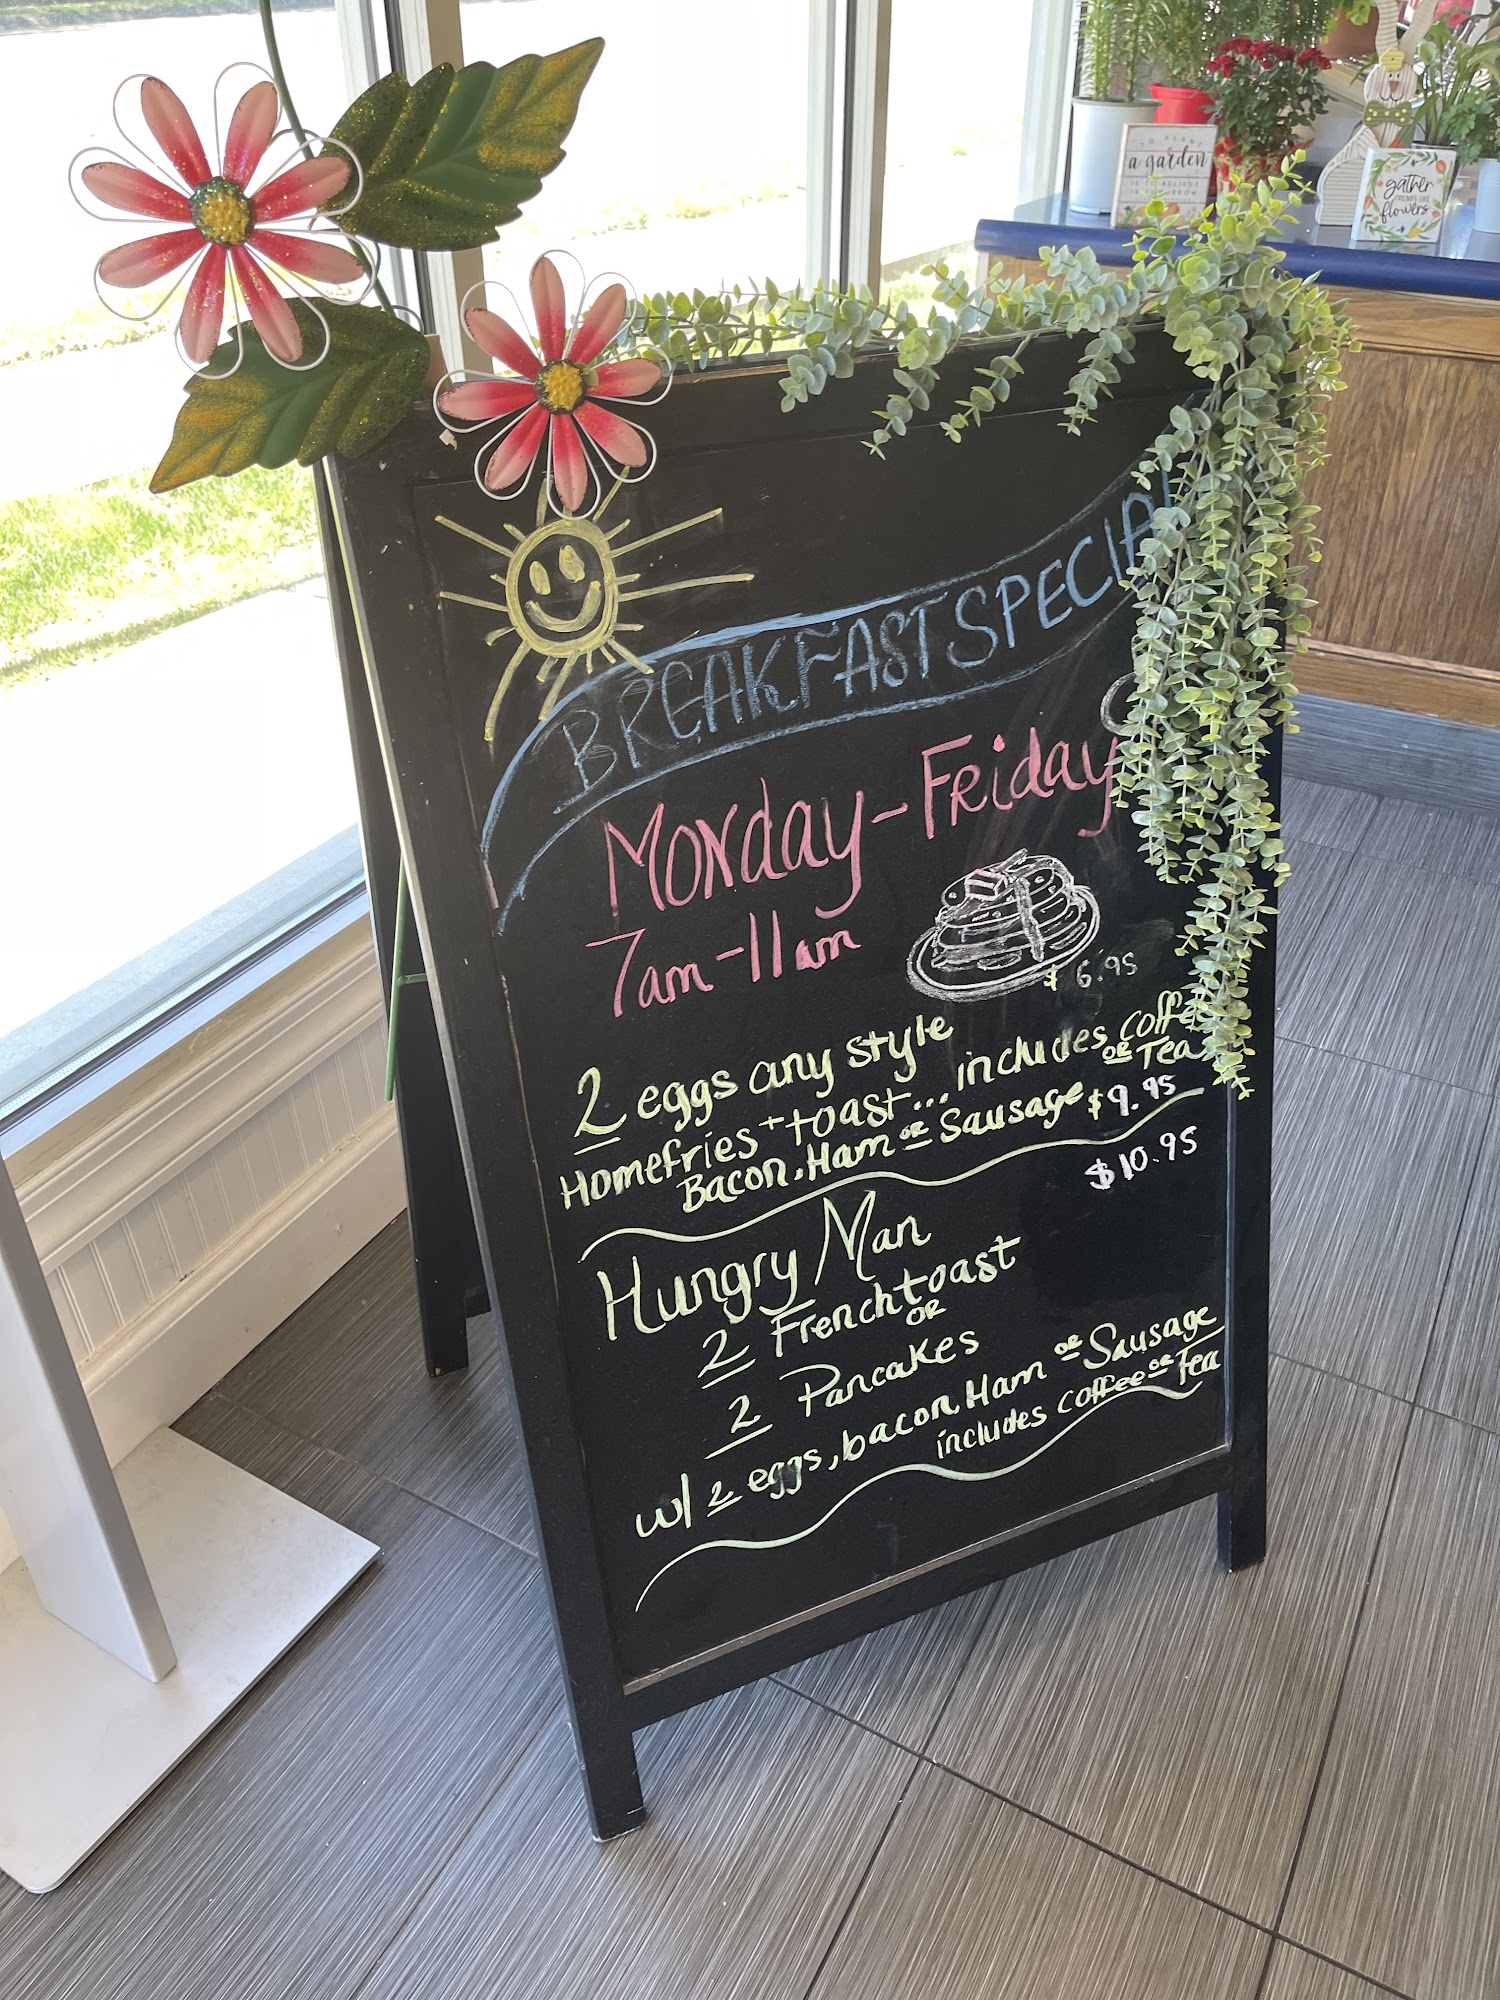 a garden
gather
flowers
BREAKFAST SPECIAL
Monday-Friday
7am-11am
$ 6.95
2 eggs any style
Homefries + toast... includes coffee
OR Tea
Bacon, Ham OR Sausage $9.95
$10.95
Hungry Man
2 Frenchtoast
OR
2 Pancakes
w/ 2 eggs, bacon, Ham OR Sausage
includes coffee OR Tea